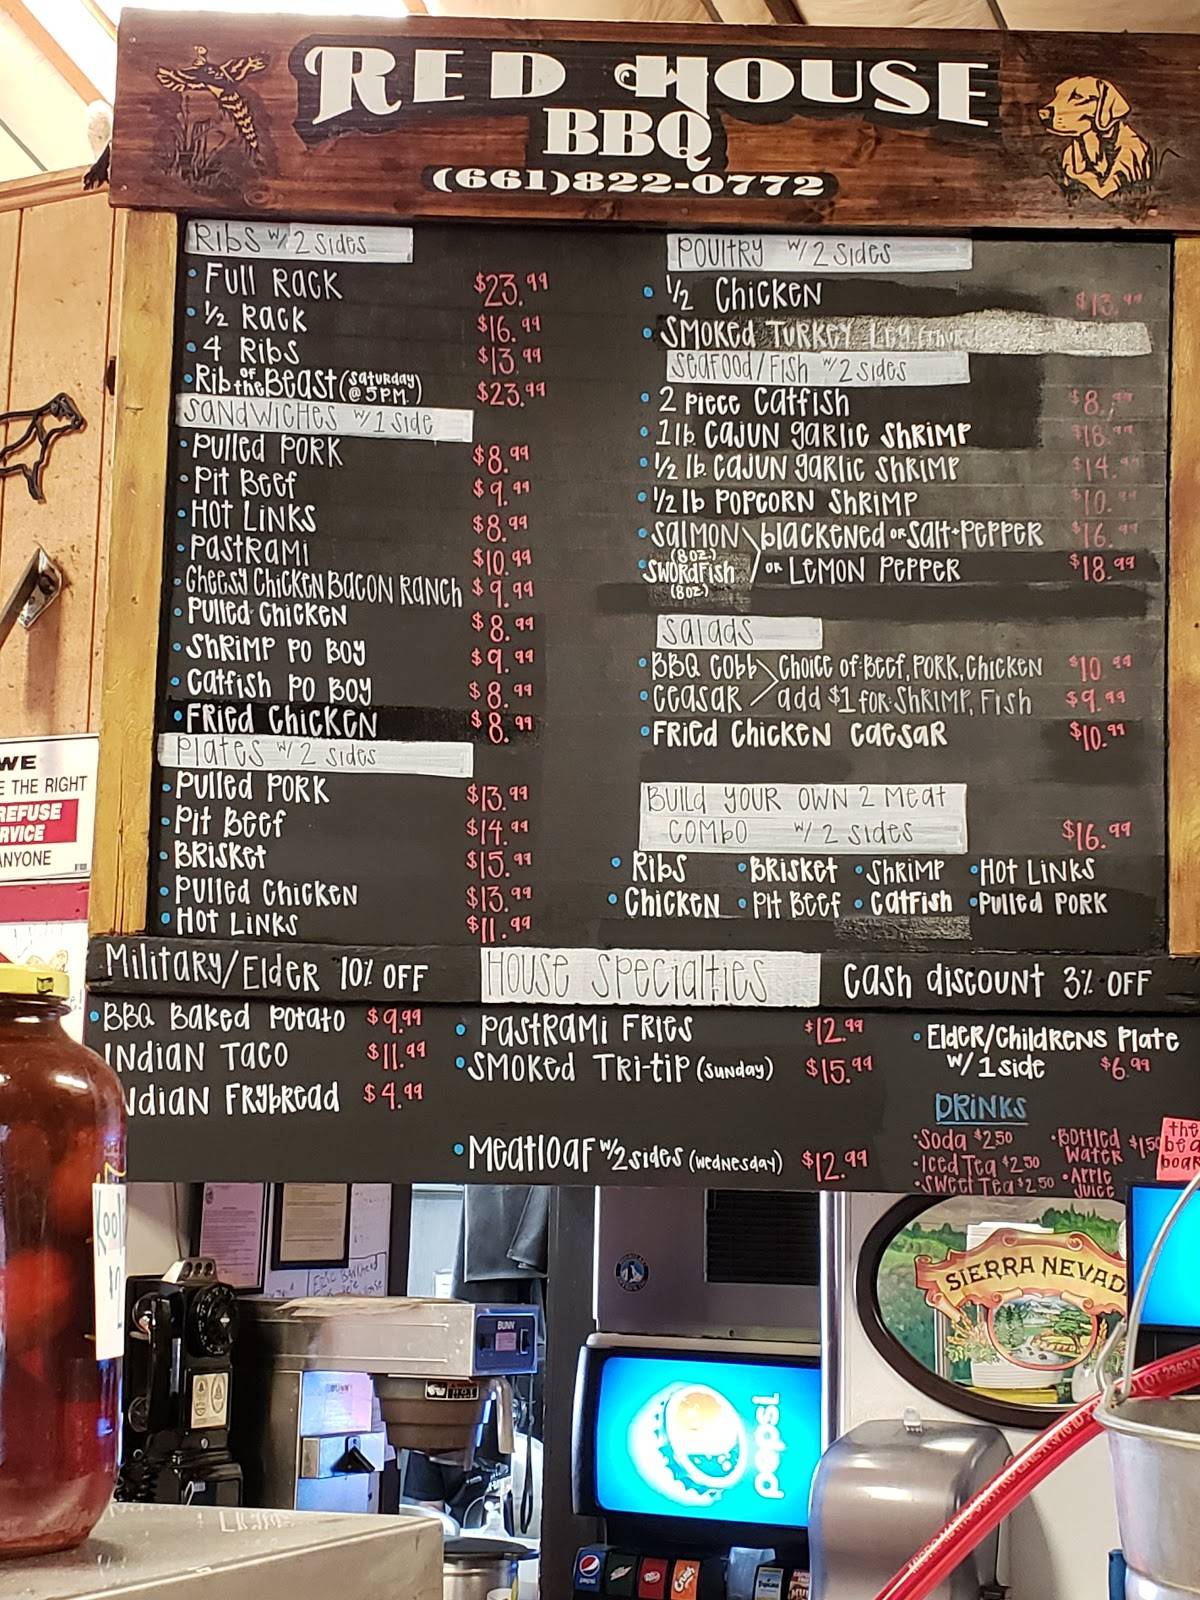 RED HOUSE
BBQ
(661)822-0772
Ribs w/ 2 sides
• Full Rack $23.99
• ½ Rack $16.99
• 4 Ribs $13.99
• Rib of the Beast (Saturday @ 5PM) $23.99
Sandwiches w/ 1 side
• Pulled Pork $8.99
• Pit Beef $9.99
• Hot Links $8.99
• Pastrami $10.99
• Cheesy Chicken Bacon Ranch $9.99
• Pulled Chicken $8.99
• Shrimp Po Boy $9.99
• Catfish Po Boy $8.99
• Fried Chicken $8.99
Plates w/ 2 sides
• Pulled Pork $13.99
• Pit Beef $14.99
• Brisket $15.99
• Pulled Chicken $13.99
• Hot Links $11.99
Poultry w/ 2 sides
• ½ Chicken $13.99
• Smoked Turkey Leg
Seafood/Fish w/ 2 sides
• 2 piece Catfish $8.99
• 1 lb. Cajun garlic Shrimp $18.99
• ½ lb. Cajun garlic Shrimp $14.99
• ½ lb Popcorn Shrimp $10.99
• Salmon (8 oz.) blackened or Salt+Pepper $16.99
• Swordfish (8 oz) or Lemon Pepper $18.99
Salads
• BBQ Cobb Choice of: Beef, Pork, Chicken $10.99
• Ceasar add $1 for: Shrimp, Fish $9.99
• Fried Chicken Caesar $10.99
Build your own 2 meat
combo w/ 2 sides $16.99
• Ribs • Brisket • Shrimp • Hot Links
• Chicken • Pit Beef • Catfish • Pulled Pork
Military/Elder 10% OFF House Specialties Cash discount 3% OFF
• BBQ Baked Potato $9.99
Indian Taco $11.99
ndian Frybread $4.99
• Pastrami Fries $12.99
• Smoked Tri-tip (Sunday) $15.99
• Meatloaf w/ 2 sides (Wednesday) $12.99
• Elder/Childrens Plate
w/ 1 side $6.99
DRINKS
• Soda $2.50
• Iced Tea $2.50
• Sweet Tea $2.50
• Bottled Water $1.50
• Apple Juice
the
boar
WE
E THE RIGHT
REFUSE
RVICE
ANYONE
BUNN
BUNN
pepsi
SIERRA NEVAD
pepsi
Crush